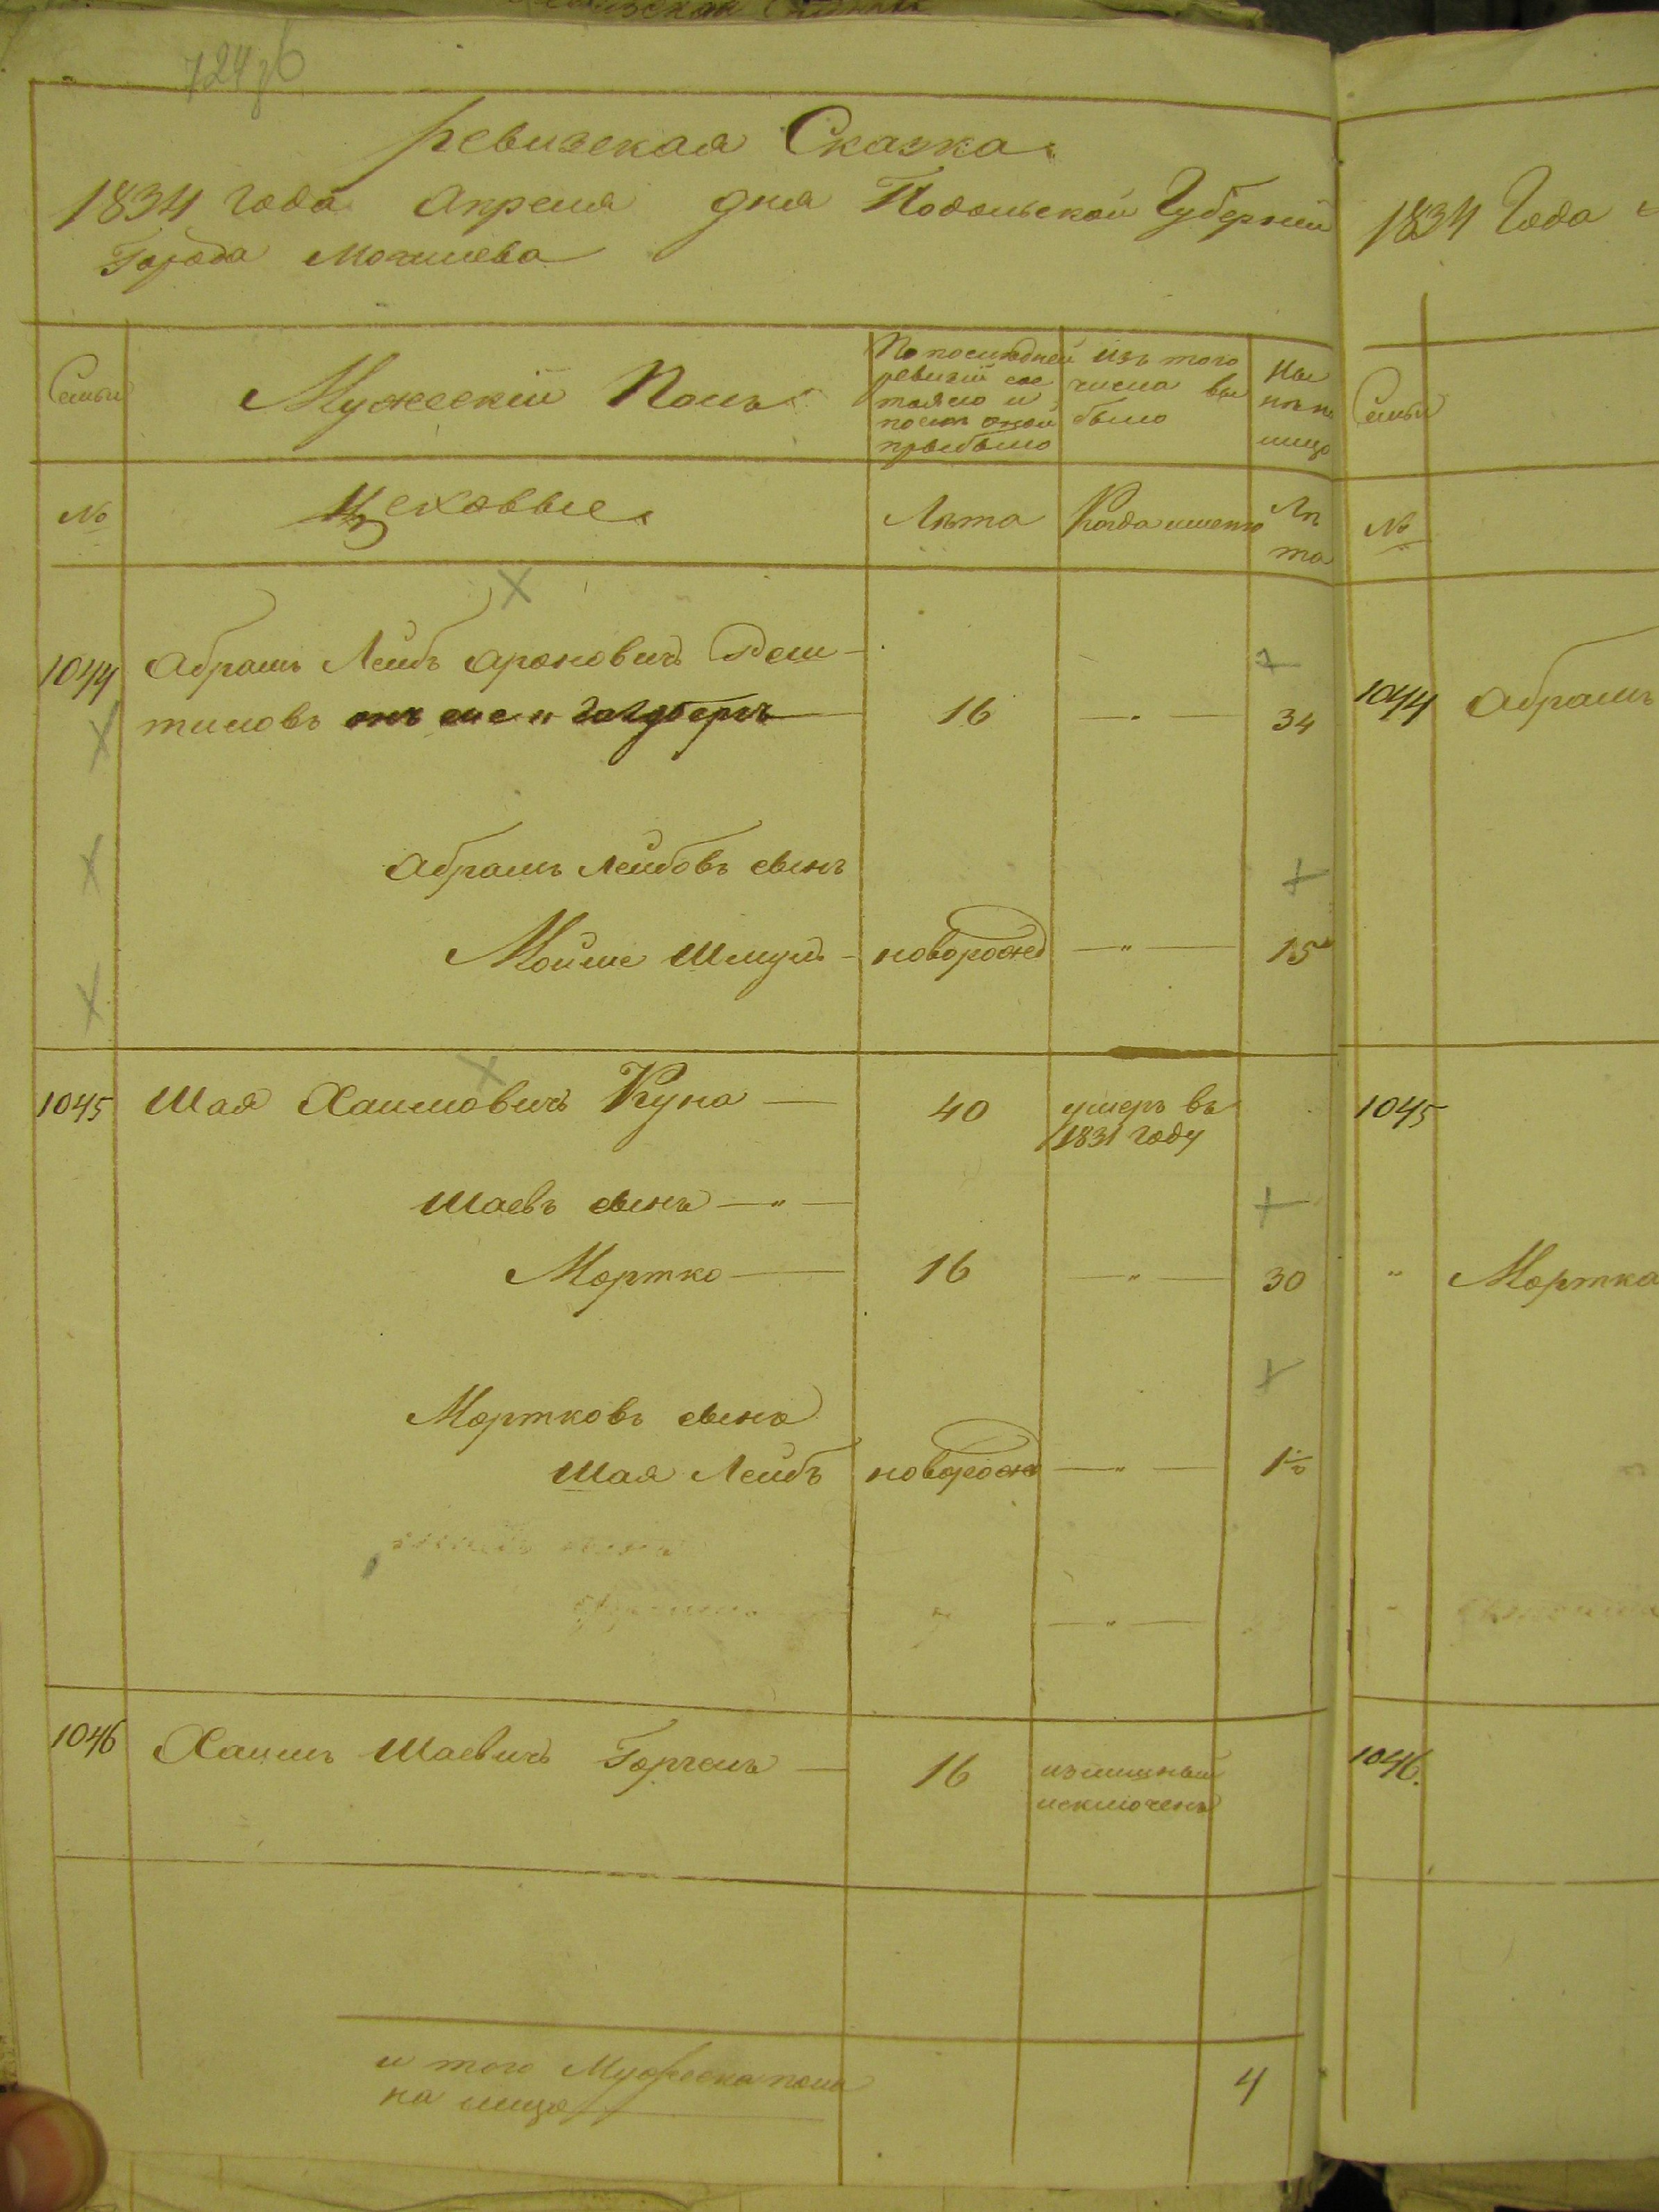 724об
Ревизская Сказка
1834 года Апреля дня Подольской Губернии
Города Могилева
Семьи
Мужескій Полъ
По последней ревизіи состояло и после оной прибыло
Изъ того числа выбыло
Ныне на лицо
№
Цеховые
Лѣта
Когда именно
Лѣта
1044
Абрамъ Лейбъ Ароновичъ
тиловъ онъ же и Голдбергъ
16
34
Абрамъ Лейбовъ сынъ
Мойше Шмуль
новорожд
15
1045
Шая Хаимовичъ Куна
40
умеръ въ
1831 году
Шаевъ сынъ
Мортко
16
30
Мортковъ сынъ
Шая Лейбъ
новорожд
1½
1046
Хаимъ Шаевичъ
16
излишный
исключенъ
и того Мужеска пола
на лицо
4
1834 Года
Семьи
№
1044
Абрамъ
1045
Мортка
1046.